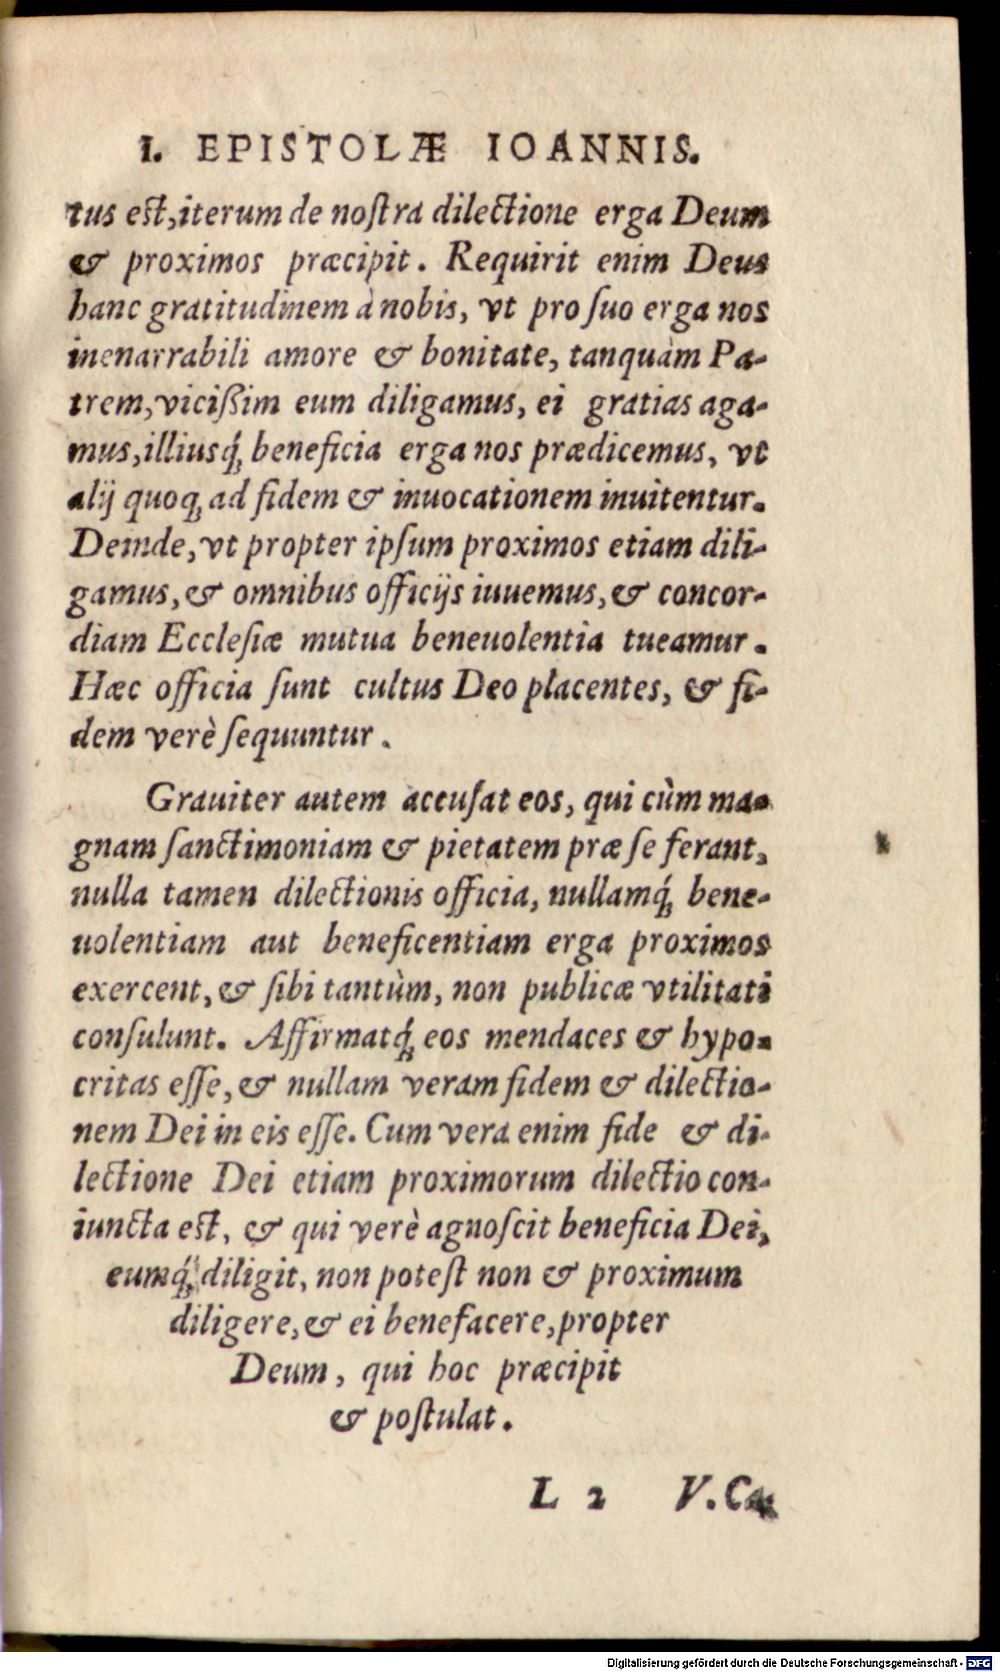 I. EPISTOLÆ IOANNIS.
tus est, iterum de noſtra dilectione erga Deum
& proximos præcipit. Requirit enim Deus
hanc gratitudinem à nobis, vt pro ſuo erga nos
inenarrabili amore & bonitate, tanquàm Pa-
trem, viciſsim eum diligamus, ei gratias aga-
mus, illiusq́; beneficia erga nos prædicemus, vt
alij quoq; ad fidem & inuocationem inuitentur.
Deinde, vt propter ipſum proximos etiam dili-
gamus, & omnibus officijs iuuemus, & concor-
diam Eccleſiæ mutua beneuolentia tueamur.
Hæc officia ſunt cultus Deo placentes, & fi-
dem verè ſequuntur.
Grauiter autem accuſat eos, qui cùm ma-
gnam ſanctimoniam & pietatem præ ſe ferant,
nulla tamen dilectionis officia, nullamq́; bene-
uolentiam aut beneficentiam erga proximos
exercent, & ſibi tantùm, non publicæ vtilitati
conſulunt. Affirmatq́; eos mendaces & hypo-
critas eſſe, & nullam veram fidem & dilectio-
nem Dei in eis eſſe. Cum vera enim fide & di-
lectione Dei etiam proximorum dilectio con-
iuncta est, & qui verè agnoſcit beneficia Dei,
eumq́; diligit, non poteſt non & proximum
diligere, & ei benefacere, propter
Deum, qui hoc præcipit
& poſtulat.
L 2 V. Ca
Digitalisierung gefördert durch die Deutsche Forschungsgemeinschaft - DFG